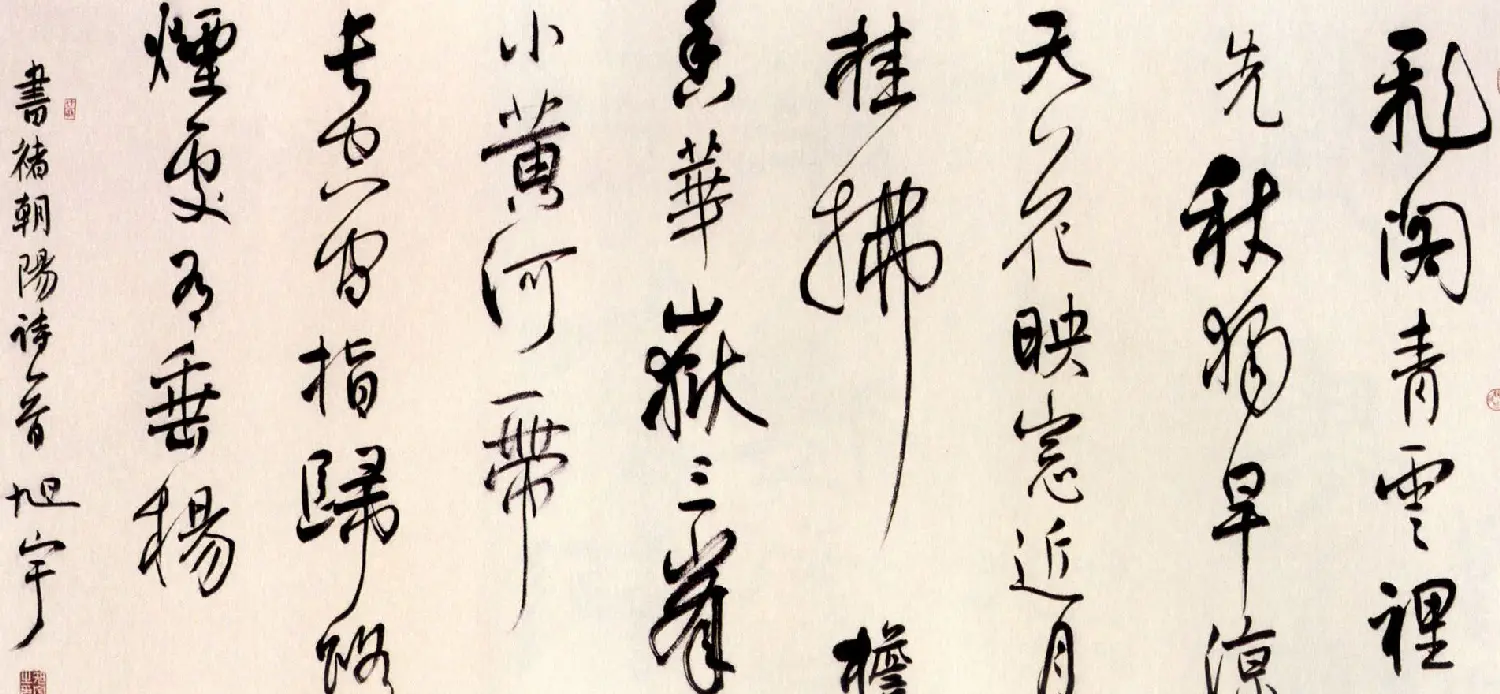 飛閣青雲裡
先秋獨早涼
天花映窓近月
桂拂檐
香華嶽三峯
小黃河一帶
長空間指歸路
煙有垂楊
書褚朝陽詩一首 旭宇